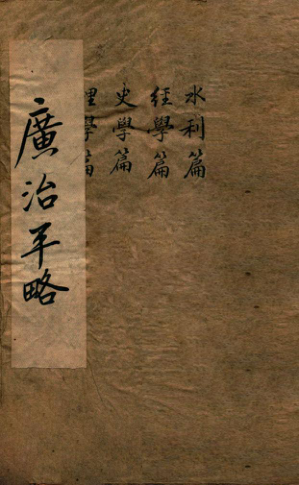 水利篇
經學篇
史學篇
理學篇
廣治平略